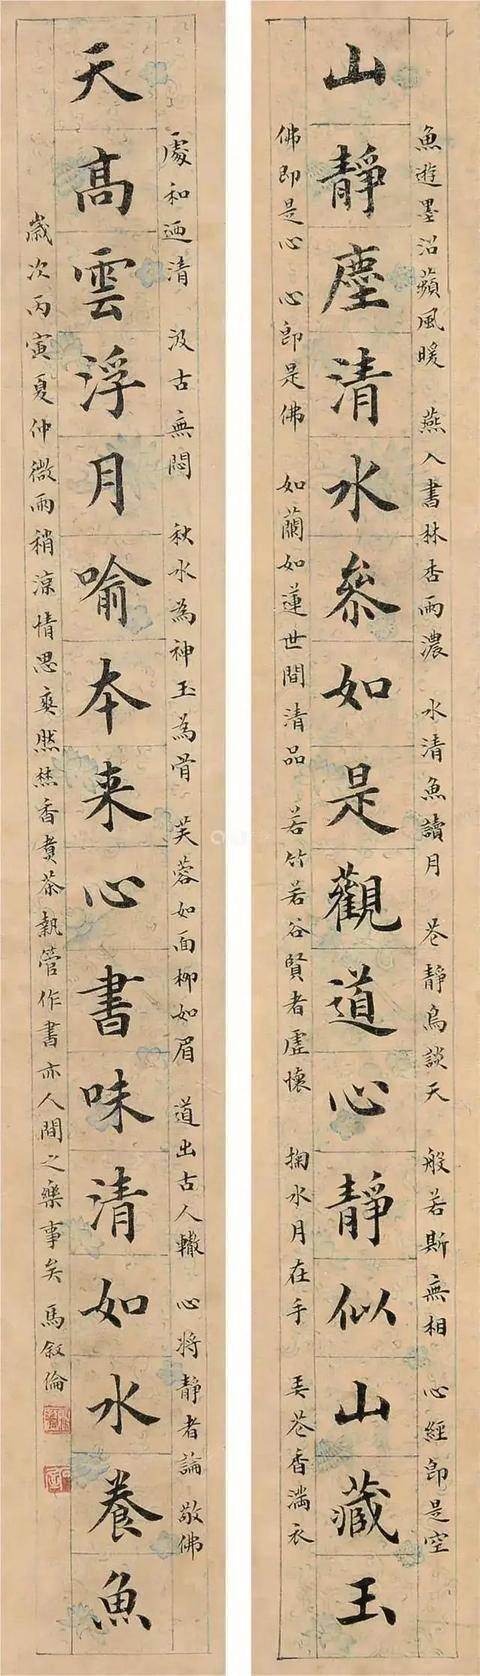 魚遊墨沼蘋風暖 燕入書林杏雨濃 水清魚讀月 花靜鳥談天 般若斯無相 心經即是空
山靜塵清水參如是觀道心靜似山藏玉
佛即是心 心即是佛 如蘭如蓮世間清品 若竹若谷賢者虛懷 掬水月在手 弄花香滿衣
處和迺清 汲古無悶 秋水為神玉為骨 芙蓉如面柳如眉 道出古人轍 心將靜者論 敬佛
天高雲浮月喻本来心書味清如水養魚
歲次丙寅夏仲微雨稍涼情思爽然焚香煮茶執管作書亦人間之樂事矣 馬敘倫